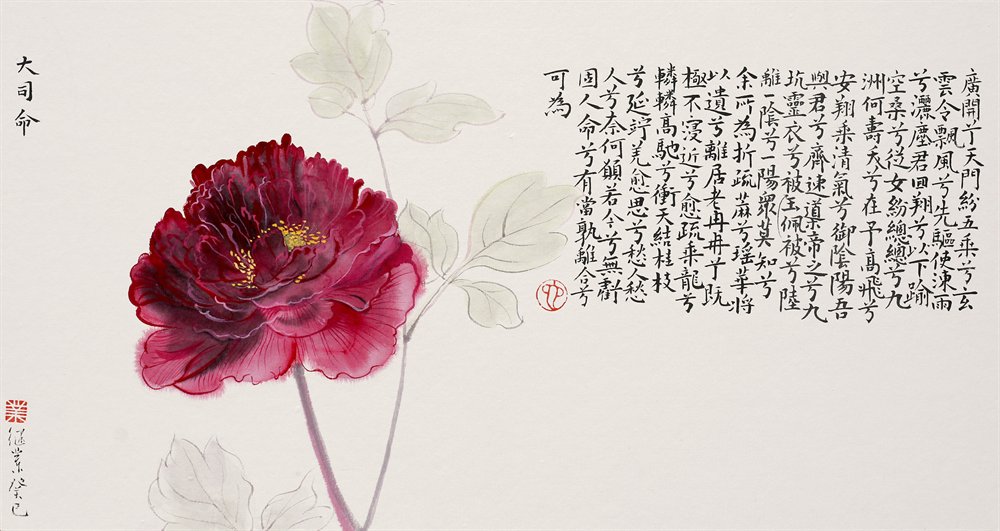 廣開兮天門紛五乘兮玄
雲令飄風兮先驅使涷雨
兮灑塵君回翔兮以下踰
空桑兮從女紛總總兮九
洲何壽夭兮在予高飛兮
安翔乘清氣兮御陰陽吾
與君兮齋速導帝之兮九
坑靈衣兮被玉佩被兮陸
離一陰兮一陽眾莫知兮
余所為折疏麻兮瑤華將
以遺兮離居老冉冉兮既
極不寖近兮愈疏乘龍兮
轔轔高馳兮衝天結桂枝
兮延竚羌愈思兮愁人愁
人兮奈何願若今兮無虧
固人命兮有當孰離合兮
可為
大司命
業
继業癸巳